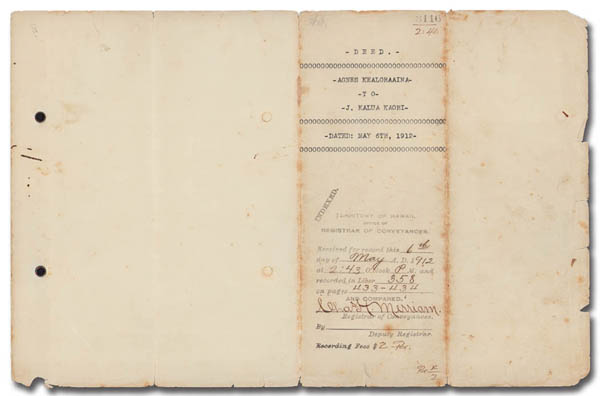 3116
2:40
- D E E D . -
-AGNES KEALOHAAINA-
-T O-
-J. KALUA KAOHI-
-DATED: MAY 6TH, 1912-
INDEXED.
TERRITORY OF HAWAII,
OFFICE OF
REGISTRAR OF CONVEYANCES.
Received for record this 6th
day of May A. D. 1912
at 2:43 o'clock P M. and
recorded in Liber 358
on pages 433-434
AND COMPARED.
Chas H Merriam.
Registrar of Conveyances.
By
Deputy Registrar.
Recording Fees $2